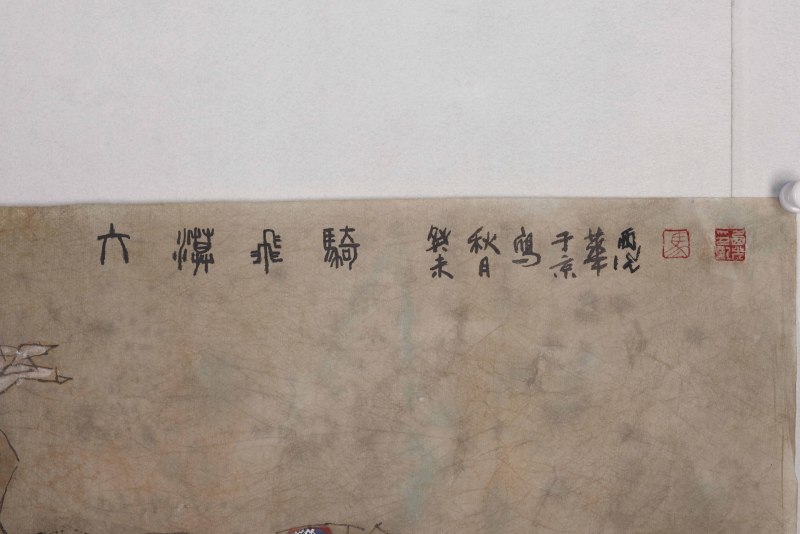 大漠飛騎 癸未秋月寫于京華
馬